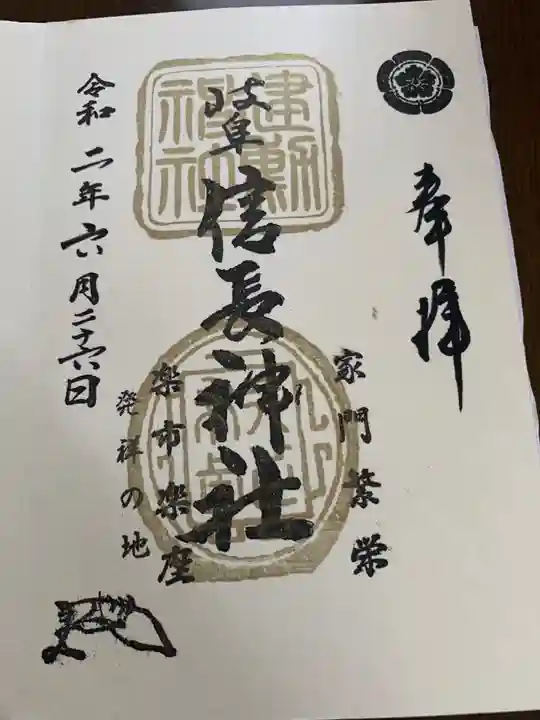 奉拝
家門繁栄
建勲
神社
岐阜
信長神社
楽市楽座
発祥の地
令和二年六月二十六日